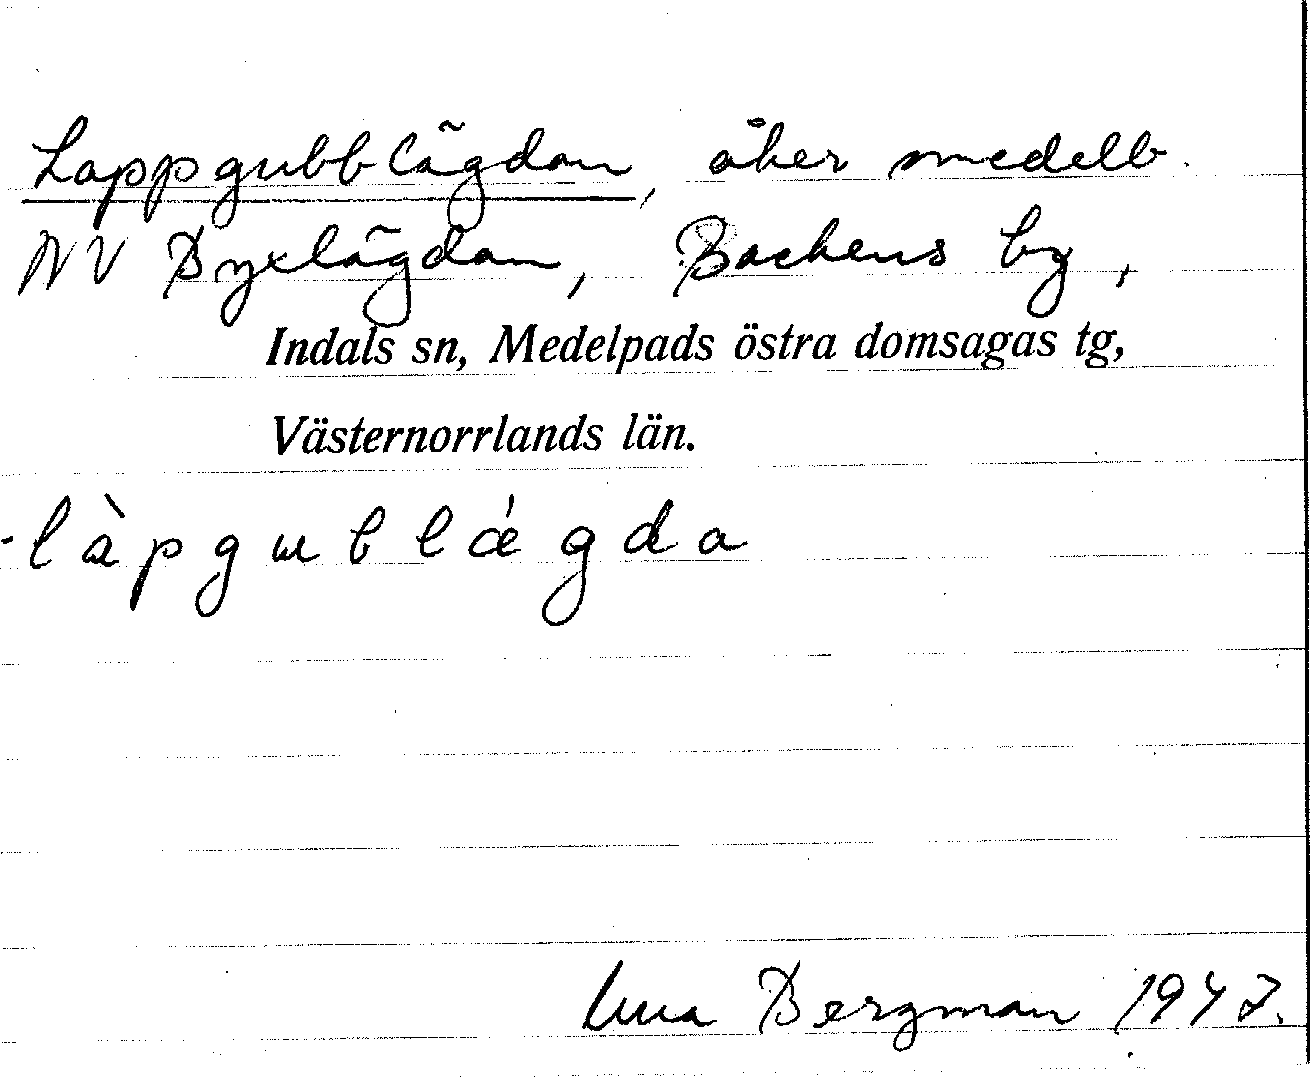 Lappgubblägdan, åker medelb.
NV Byxlägdan, Backens by,
Indals sn, Medelpads östra domsagas tg,
Västernorrlands län.
-làpgubblǽgda
Bergman 1947.